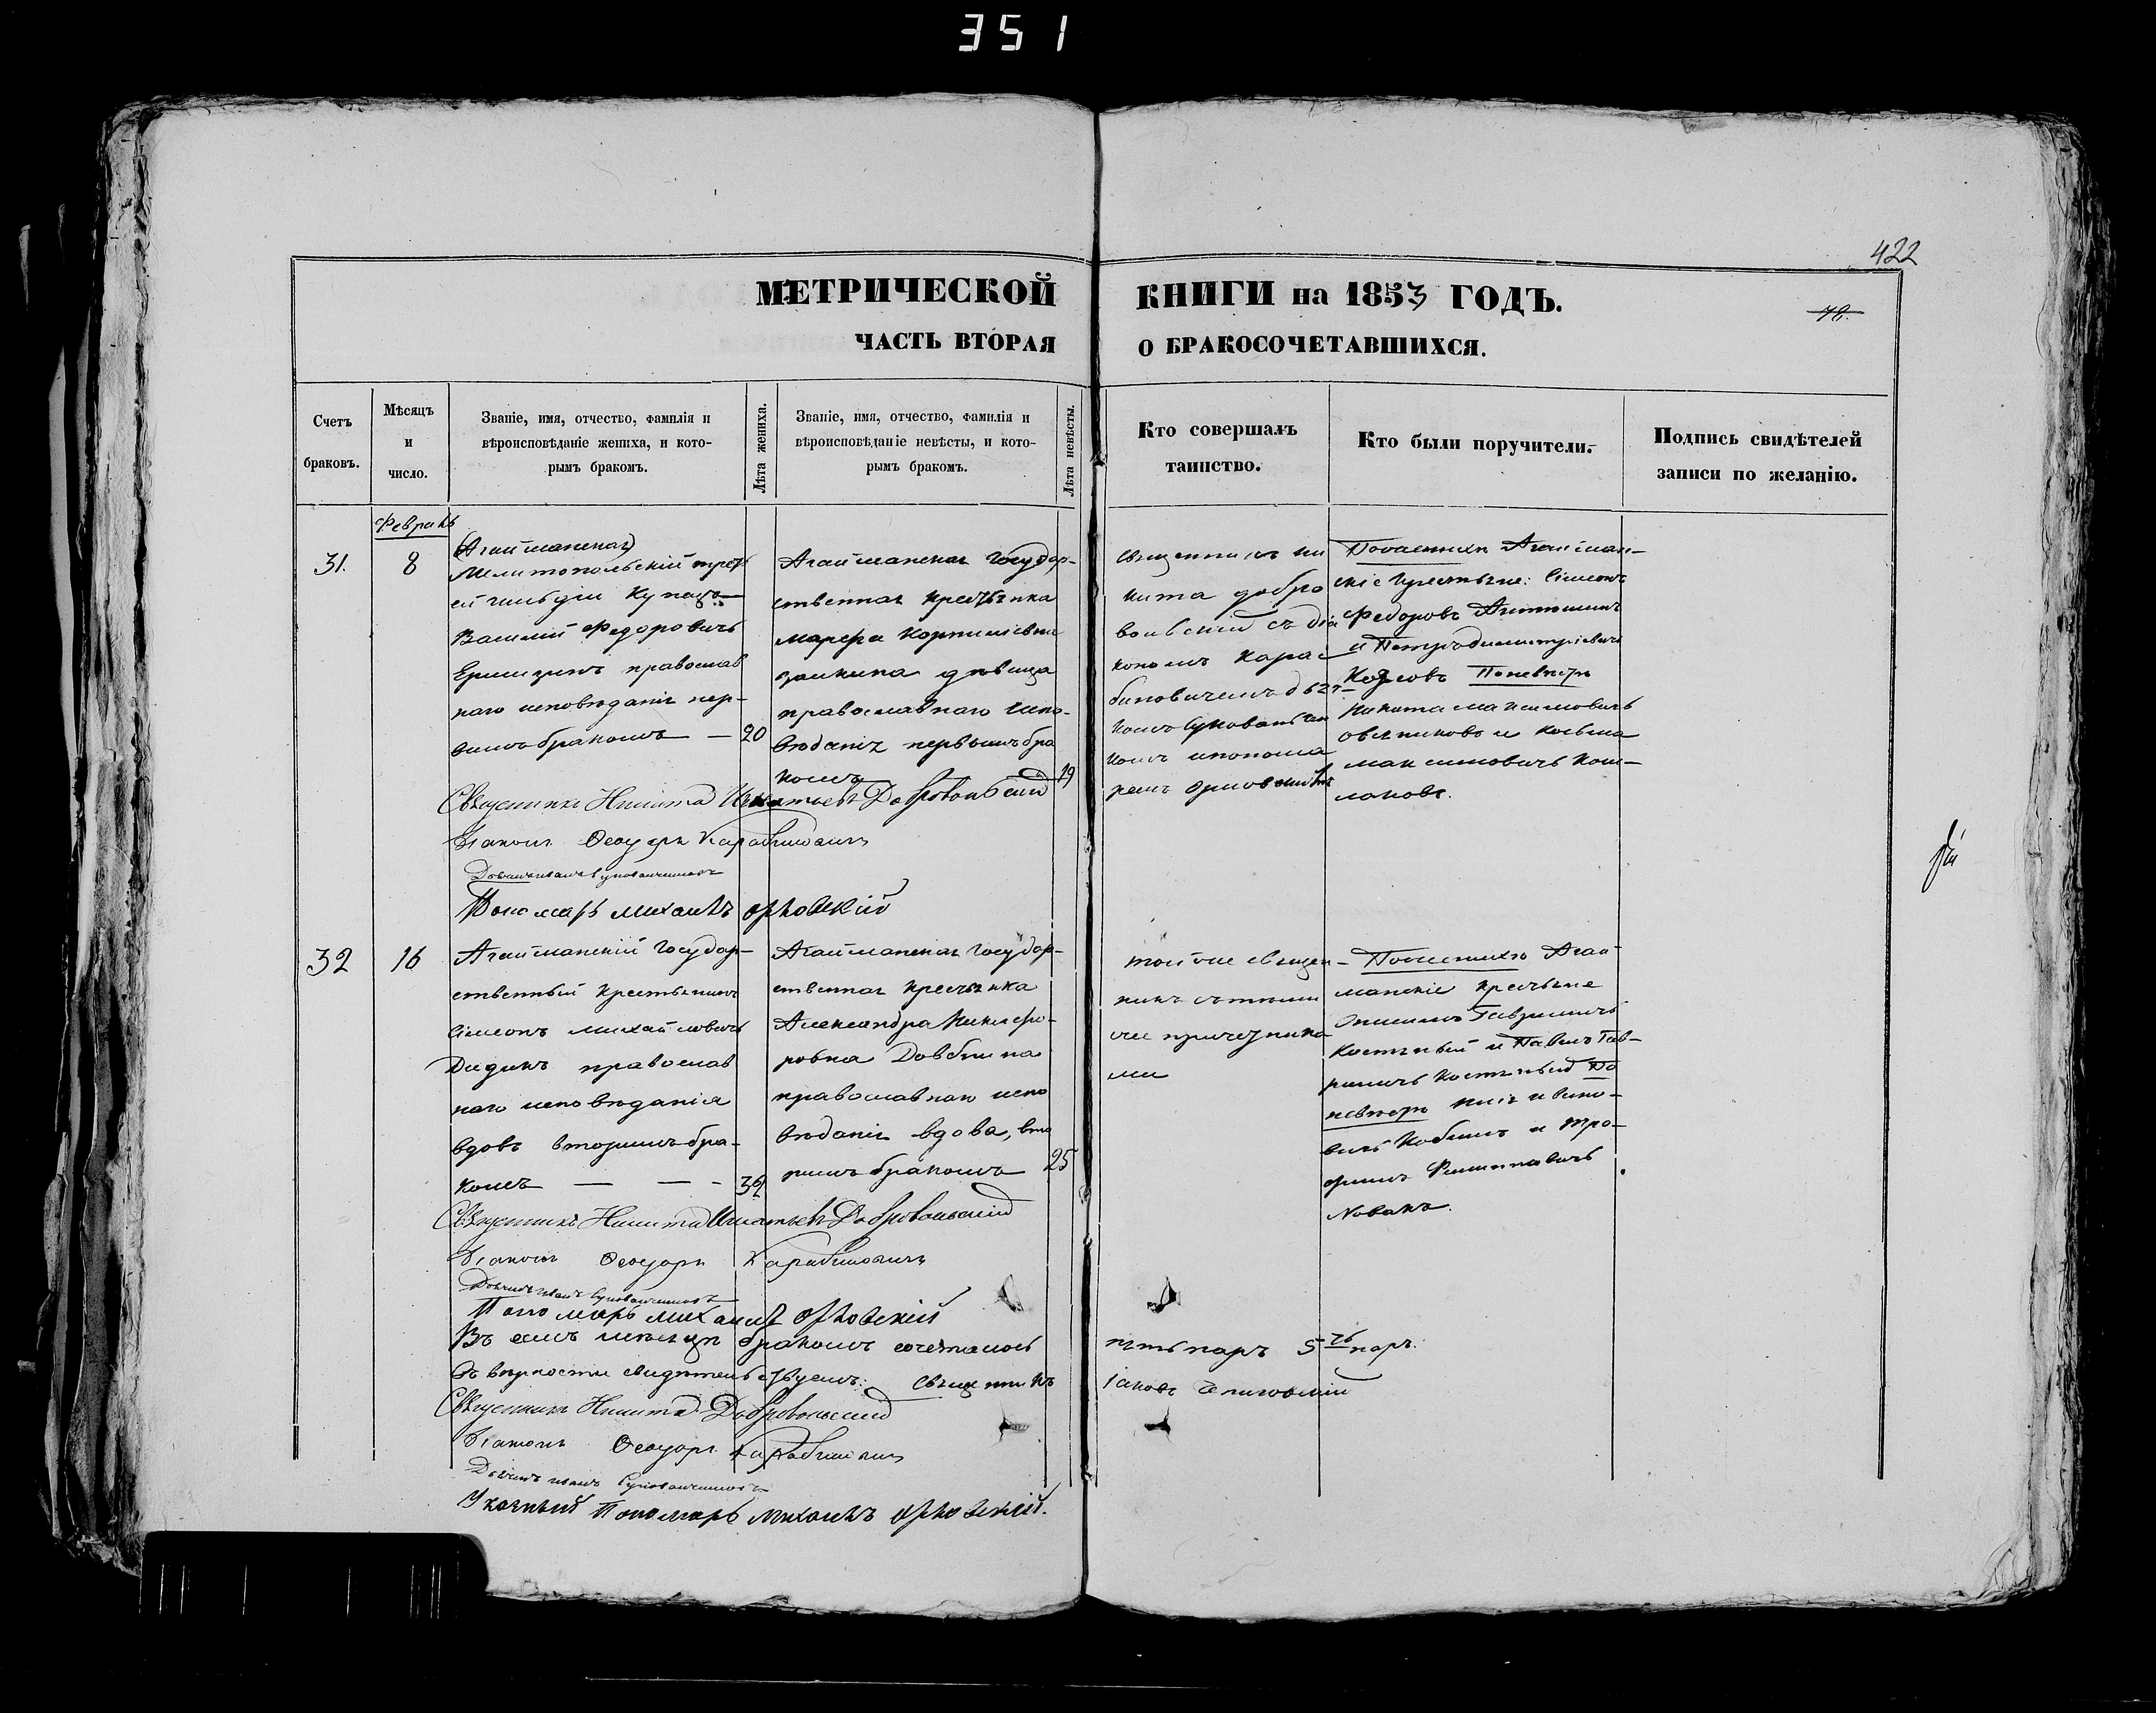 351
422
МЕТРИЧЕСКОЙ КНИГИ на 1853 ГОДЪ.
78.
ЧАСТЬ ВТОРАЯ О БРАКОСОЧЕТАВШИХСЯ.
Счетъ
браковъ.
Мѣсяцъ
и
число.
Званіе, имя, отчество, фамилія и
вѣроисповѣданіе жениха, и кото-
рымъ бракомъ.
Лѣта жениха.
Званіе, имя, отчество, фамилія и
вѣроисповѣданіе невѣсты, и кото-
рымъ бракомъ.
Лѣта невѣсты.
Кто совершалъ
таинство.
Кто были поручители.
Подпись свидѣтелей
записи по желанію.
31.
Февраль
8
Мелитопольскій треть
ей гильдіи Купецъ
Василій Федоровичъ
православ
наго исповѣданія пер-
вымъ бракомъ — 20
Агайманская Государ-
ственная крестьянка
Марфа Корниліевна
заикина дѣвица
православнаго испо-
вѣданія первымъ бра
комъ 19
Священникъ Ни
кита добро
вольскій съ діа
кономъ Караб
биновичемъ дьяч-
комъ
комъ и понома
ремъ Орловскимъ
По женихѣ Агайман-
скіе Крестьяне: Симеонъ
Федоровъ
и Петръ Димитріевичъ
По невѣстѣ
Никита Максимовичъ
Овсянниковъ и Косьма
Максимовичъ
Священникъ Никита Игнатьевъ Добровольскій
Діаконъ Ѳеодоръ Карабиновичъ
Пономарь Михаилъ Орловскій
32
16
Агайманскій Государ-
ственный Крестьянинъ
Симеонъ Михайловичъ
Дидикъ православ
наго исповѣданія
вдовъ вторымъ бра-
комъ — — - 32
Агайманская Государ-
ственная крестьянка
Александра Никифо-
ровна
православнаго испо
вѣданія вдова, вто
рымъ бракомъ 25
тотъ же священ-
никъ съ тѣми
же причетника
ми
По женихѣ Агай
манскіе крестьяне
Гавриловичъ
и Павелъ Гав-
риловичъ По
невѣстѣ
и Тро-
фимъ Филиповичъ
Новакъ.
Священникъ Никита Игнатьевъ Добровольскій
Діаконъ Ѳеодоръ Карабиновичъ
Пономарь Михаилъ Орловскій
Въ семъ мѣсяцѣ бракомъ сочеталось пять паръ 5-ть паръ.
Въ вѣрности свидѣтельствуемъ: Священникъ Іаковъ
Священникъ Никита Добровольскій
Діаконъ Ѳеодоръ Карабиновичъ
Указный Пономарь Михаилъ Орловскій.